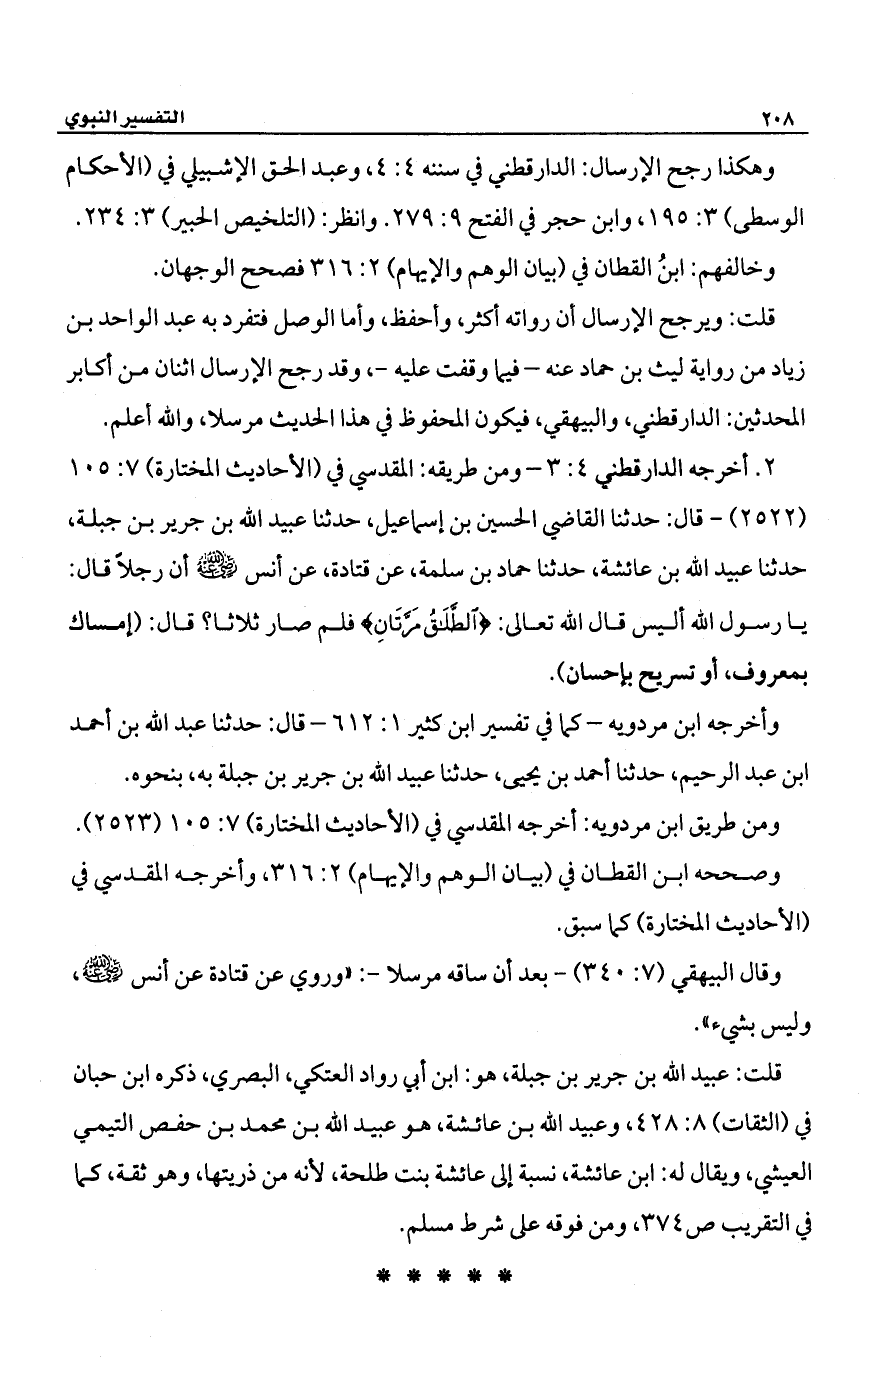 ٢٠٨ التفسير النبوي
وهكذا رجح الإرسال: الدارقطني في سننه ٤: ٤، وعبد الحق الإشبيلي في (الأحكام
الوسطى) ٣: ١٩٥، وابن حجر في الفتح ٩: ٢٧٩. وانظر: (التلخيص الحبير) ٣: ٢٣٤.
وخالفهم: ابنُ القطان في (بيان الوهم والإيهام) ٢: ٣١٦ فصحح الوجهان.
قلت: ويرجح الإرسال أن رواته أكثر، وأحفظ، وأما الوصل فتفرد به عبد الواحد بن
زياد من رواية ليث بن حماد عنه – فيما وقفت عليه –، وقد رجح الإرسال اثنان من أكابر
المحدثين: الدارقطني، والبيهقي، فيكون المحفوظ في هذا الحديث مرسلا، والله أعلم.
٢. أخرجه الدارقطني ٤: ٣ – ومن طريقه: المقدسي في (الأحاديث المختارة) ٧: ١٠٥
(٢٥٢٢) – قال: حدثنا القاضي الحسين بن إسماعيل، حدثنا عبيد الله بن جرير بن جبلة،
حدثنا عبيد الله بن عائشة، حدثنا حماد بن سلمة، عن قتادة، عن أنس ﵁ أن رجلاً قال:
يا رسول الله أليس قال الله تعالى: ﴿ٱلطَّلَٰقُ مَرَّتَانِ﴾ فلم صار ثلاثا؟ قال: (إمساك
بمعروف، أو تسريح بإحسان).
وأخرجه ابن مردويه – كما في تفسير ابن كثير ١: ٦١٢ – قال: حدثنا عبد الله بن أحمد
ابن عبد الرحيم، حدثنا أحمد بن يحيى، حدثنا عبيد الله بن جرير بن جبلة به، بنحوه.
ومن طريق ابن مردويه: أخرجه المقدسي في (الأحاديث المختارة) ٧: ١٠٥ (٢٥٢٣).
وصححه ابن القطان في (بيان الوهم والإيهام) ٢: ٣١٦، وأخرجه المقدسي في
(الأحاديث المختارة) كما سبق.
وقال البيهقي (٧: ٣٤٠) – بعد أن ساقه مرسلا –: «وروي عن قتادة عن أنس ﵁،
وليس بشيء».
قلت: عبيد الله بن جرير بن جبلة، هو: ابن أبي رواد العتكي، البصري، ذكره ابن حبان
في (الثقات) ٨: ٤٢٨، وعبيد الله بن عائشة، هو عبيد الله بن محمد بن حفص التيمي
العيشي، ويقال له: ابن عائشة، نسبة إلى عائشة بنت طلحة، لأنه من ذريتها، وهو ثقة، كما
في التقريب ص٣٧٤، ومن فوقه على شرط مسلم.
* * * * *